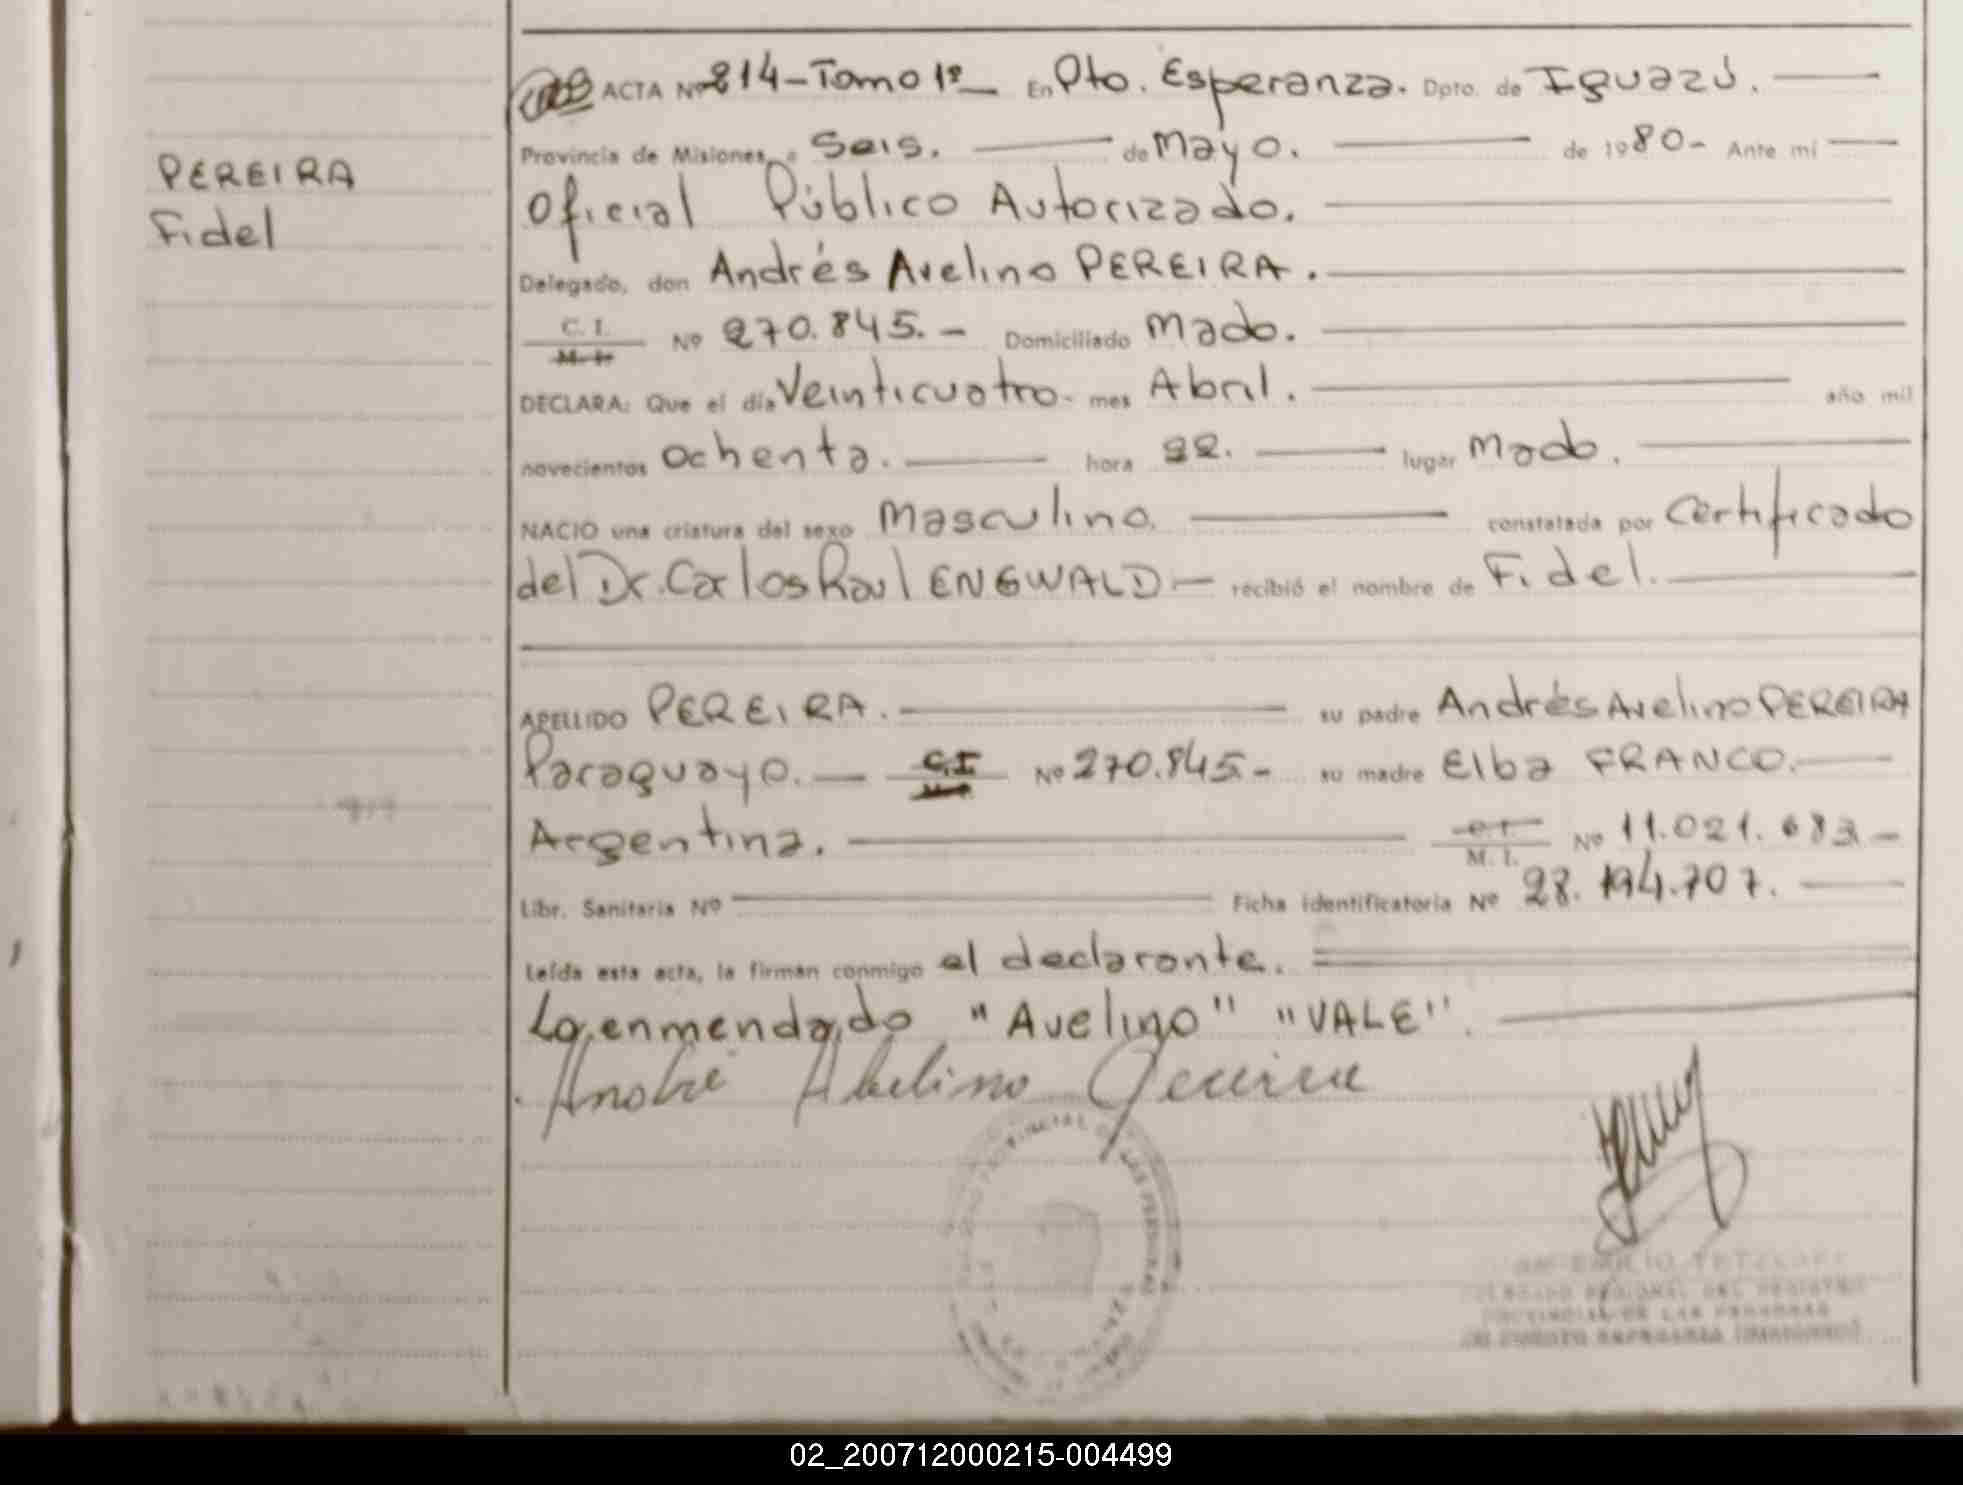 PEREIRA
Fidel
ACTA Nº 214-Tomo 1º - En Pto. Esperanza. Dpto. de Iguazú.
Provincia de Misiones, a Seis. de Mayo. de 1980- Ante mí
Oficial Público Autorizado.
Delegado, don Andrés Avelino PEREIRA.
C. I.
M. I.
Nº 270.845.- Domiciliado Mado.
DECLARA: Que el día Veinticuatro- mes Abril. año mil
novecientos Ochenta. hora 22. lugar Mado.
NACIO una criatura del sexo Masculino. constatada por Certificado
del Dr. Carlos Raul ENGWALD - recibió el nombre de Fidel.
APELLIDO PEREIRA. su padre Andrés Avelino PEREIRA
Paraguayo. - C.I Nº 270.845- su madre Elba FRANCO.
Argentina. C. I.
M. I.
Nº 11.021.683-
Libr. Sanitaria Nº Ficha identificatoria Nº 28.194.707.
Leída esta acta, la firman conmigo el declarante.
Lo enmendado "Avelino" "VALE".
Andre Abelino Pereira
PROVINCIAL DE LAS PERSONAS
DELEGADO REGIONAL DEL REGISTRO
PROVINCIAL DE LAS PERSONAS
PUERTO ESPERANZA (MISIONES)
02_200712000215-004499